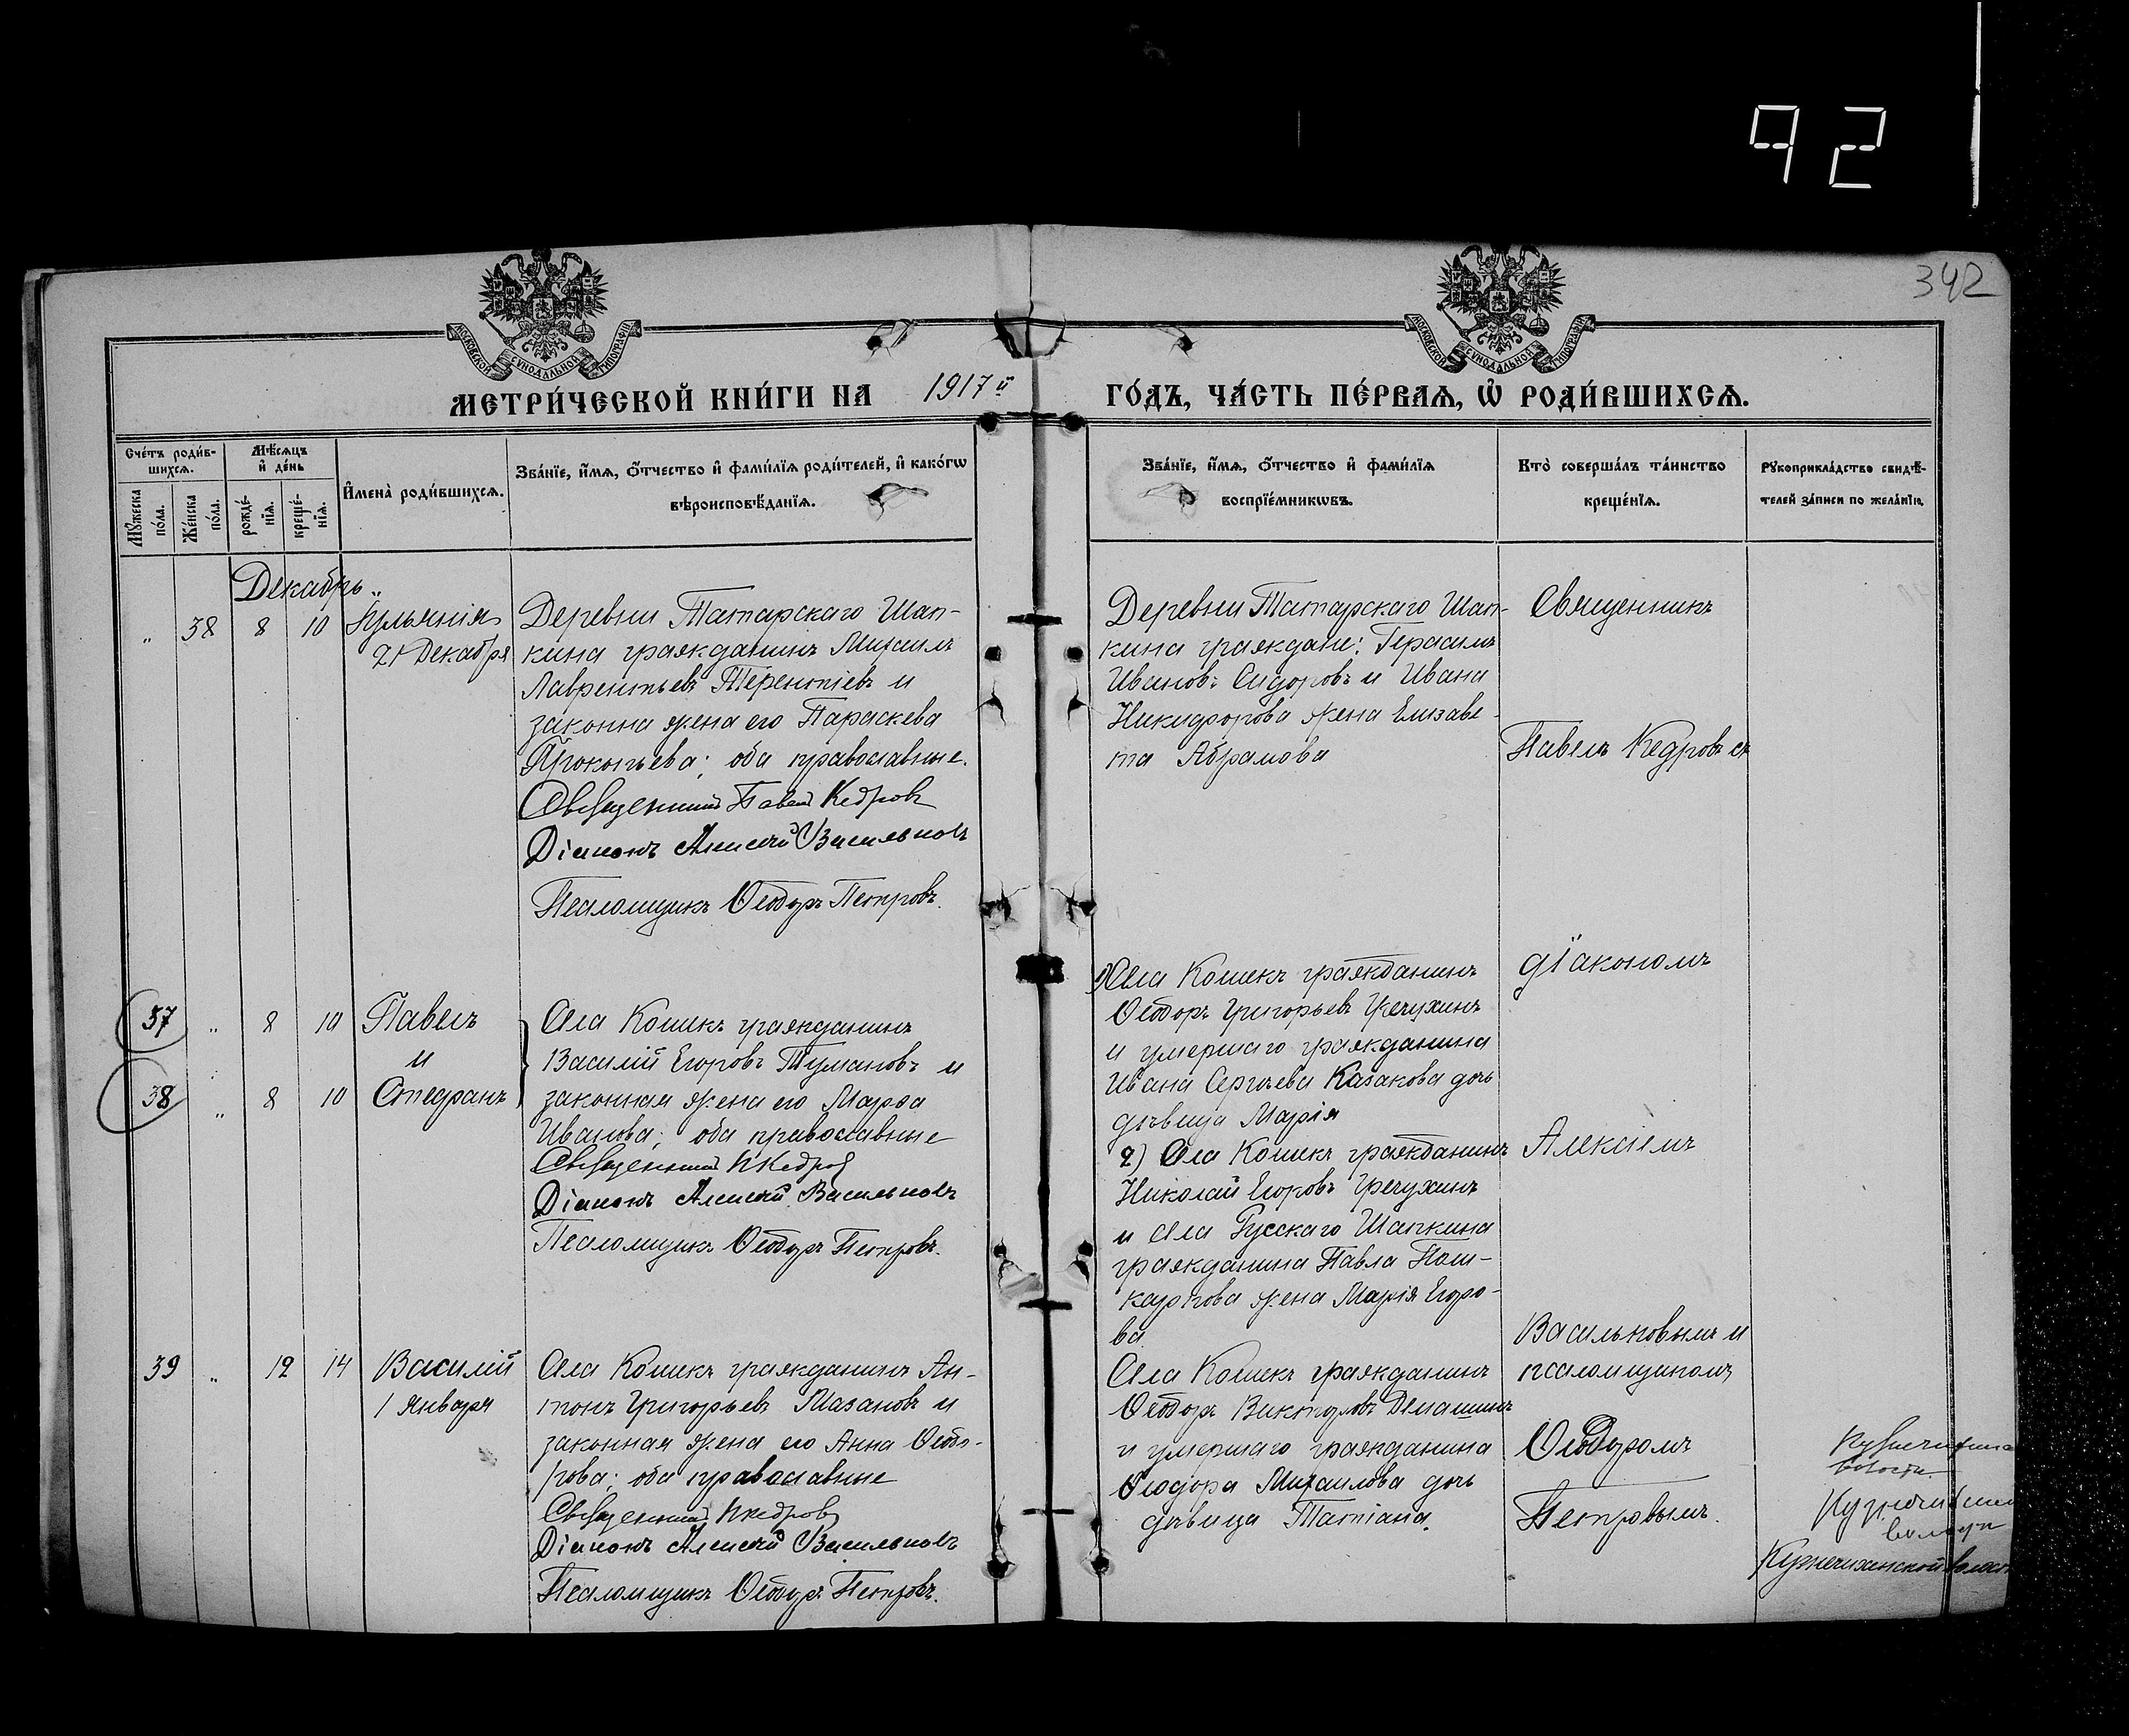 92
342
МОСКОВСКОЙ СУНОДАЛЬНОЙ ТИПОГРАФІИ
МОСКОВСКОЙ СУНОДАЛЬНОЙ ТИПОГРАФІИ
МЕТРИ́ЧЕСКОЙ КНИ́ГИ НА 1917й ГО́ДЪ, ЧА́СТЬ ПЕ́РВАѦ, Ѡ РОДИ́ВШИХСѦ.
Сче́тъ роди́вшихсѧ.
Мꙋ́жеска по́ла.
Же́нска по́ла.
Мѣ́сѧцъ и де́нь
рожде́нїѧ.
креще́нїѧ.
Имена̀ роди́вшихсѧ.
Зва́нїе, и́мѧ, о́тчество и фами́лїѧ роди́телей, и како́гѡ
вѣроисповѣ́данїѧ.
Зва́нїе, и́мѧ, о́тчество и фами́лїѧ
воспрїе́мникѡвъ.
Кто̀ соверша́лъ та́инство
креще́нїѧ.
Рꙋкоприкла́дство свидѣ́-
телей за́писи по жела́нїю.
Декабрь
" 38 8 10 Іульянія
21 Декабря
Деревни Татарскаго Шап-
кина гражданинъ Михаилъ
Лаврентьевъ Терентіевъ и
законна жена его Параскева
Прокопьева; оба православные.
Священникъ Павелъ Кедровъ
Діаконъ Алексѣй Васильковъ
Псаломщикъ Ѳеодоръ Петровъ.
Деревни Татарскаго Шап-
кина граждане: Герасимъ
Ивановъ Сидоровъ и Ивана
Никифорова жена Елизаве-
та Абрамова
Священникъ
Павелъ Кедровъ съ
37 " 8 10 Павелъ
и
38 " 8 10 Стефанъ
Села Кошекъ гражданинъ
Василій Егоровъ Тумановъ и
законная жена его Марѳа
Иванова; оба православные
Священникъ П Кедровъ
Діаконъ Алексѣй Васильковъ
Псаломщикъ Ѳеодоръ Петровъ.
1) Села Кошекъ гражданинъ
Ѳеодоръ Григорьевъ Гречухинъ
и умершаго гражданина
Ивана Сергѣева Казакова дочь
дѣвица Марія
2) Села Кошекъ гражданинъ
Николай Егоровъ Гречухинъ
и села Русскаго Шапкина
гражданина Павла
жена Марія Егоро-
ва
діакономъ
Алексіемъ
Васильковымъ и
псаломщикомъ
Ѳеодоромъ
Петровымъ.
39 " 12 14 Василій
1 Января
Села Кошекъ гражданинъ Ан-
тонъ Григорьевъ Мазановъ и
законная жена его Анна Ѳеодо-
рова; оба православные
Священникъ П Кедровъ
Діаконъ Алексѣй Васильковъ
Псаломщикъ Ѳеодоръ Петровъ.
Села Кошекъ гражданинъ
Ѳеодоръ Викторовъ
и умершаго гражданина
Ѳеодора Михаилова дочь
дѣвица Татіана.
волости
Кузнечихинской волост